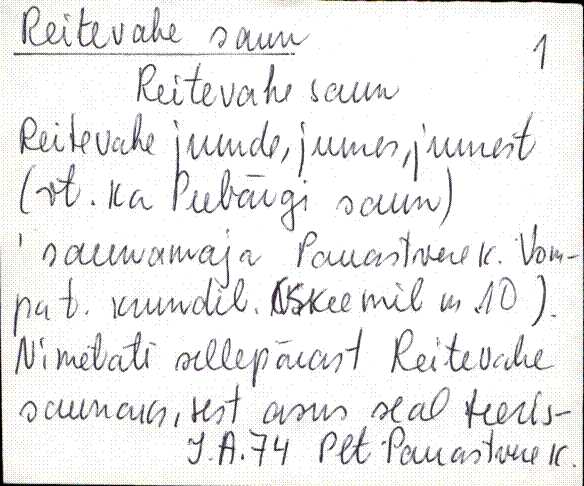 Reitevahe saun
1
Reitevahe saun
Reitevahe juude, juures, juurest
(vt. ka Peebärgi saun)
' saunamaja Pauastvere k. Vom-
pa t. krundil. (Skeemil nr 10).
Nimetati sellepärast Reitevahe
saunaks, sest asus seal teeris-
J.A.74 Plt Pauastvere k.